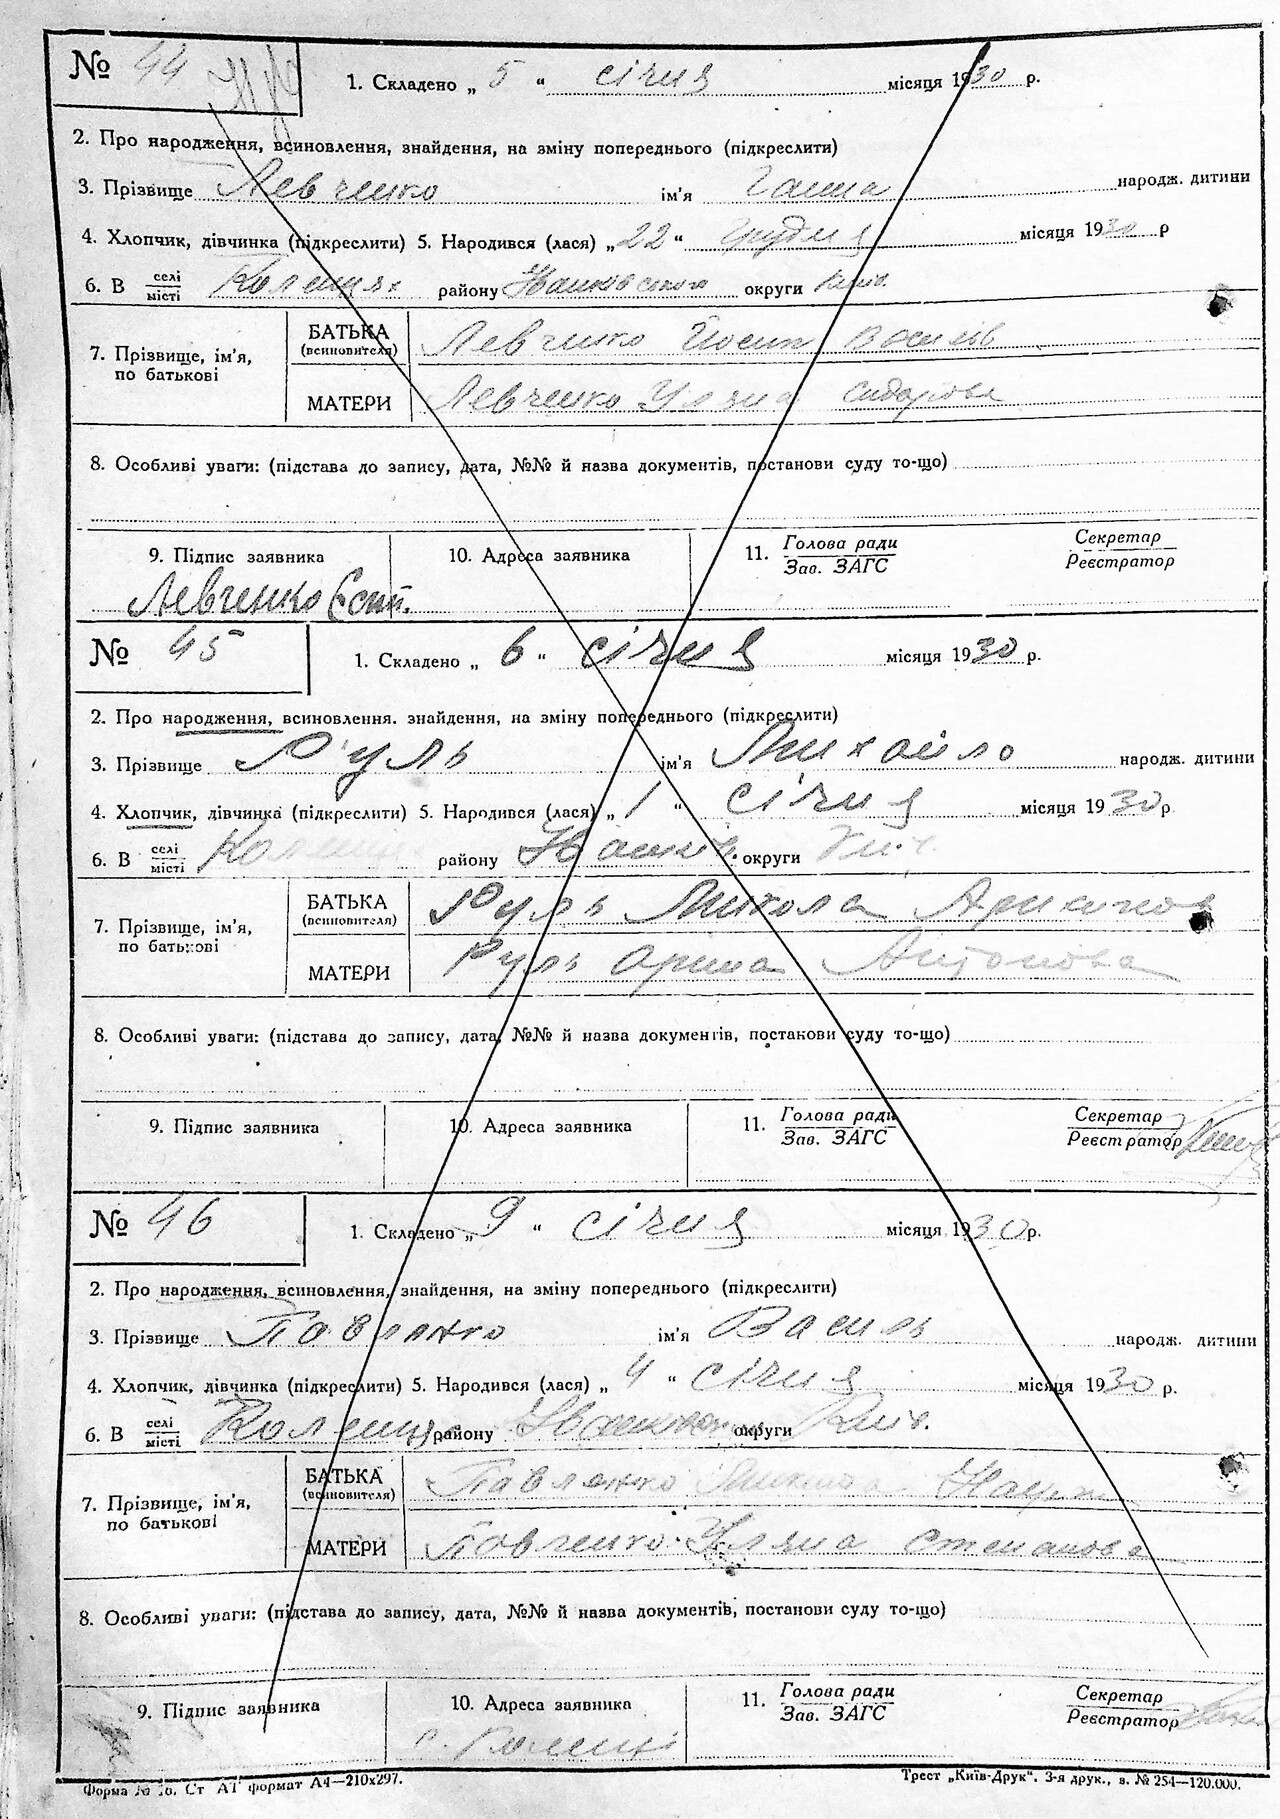 № 44 1. Складено „ 5 “ січня місяця 1930 р.
2. Про народження, всиновлення, знайдення, на зміну попереднього (підкреслити)
3. Прізвище Левченко ім'я Ганна народж. дитини
4. Хлопчик, дівчинка (підкреслити) 5. Народився (лася) „ 22 “ грудня місяця 1930 р
6. В селі місті району округи Київ.
7. Прізвище, ім'я, по батькові
БАТЬКА (всиновителя) Левченко Йосип Василів
МАТЕРИ Левченко Уляна Сидорова
8. Особливі уваги: (підстава до запису, дата, №№ й назва документів, постанови суду то-що)
9. Підпис заявника 10. Адреса заявника 11. Голова ради Зав. ЗАГС Секретар Реєстратор
Левченко
№ 45 1. Складено „ 6 “ січня місяця 1930 р.
2. Про народження, всиновлення. знайдення, на зміну попереднього (підкреслити)
3. Прізвище Руль ім'я Михайло народж. дитини
4. Хлопчик, дівчинка (підкреслити) 5. Народився (лася) „ 1 “ січня місяця 1930 р.
6. В селі місті району округи Київ.
7. Прізвище, ім'я, по батькові
БАТЬКА (всиновителя) Руль Микола
МАТЕРИ Руль Орина Антонова
8. Особливі уваги: (підстава до запису, дата, №№ й назва документів, постанови суду то-що)
9. Підпис заявника 10. Адреса заявника 11. Голова ради Зав. ЗАГС Секретар Реєстратор
№ 46 1. Складено „ 9 “ січня місяця 1930 р.
2. Про народження, всиновлення, знайдення, на зміну попереднього (підкреслити)
3. Прізвище Павленко ім'я Василь народж. дитини
4. Хлопчик, дівчинка (підкреслити) 5. Народився (лася) „ 4 “ січня місяця 1930 р.
6. В селі місті району округи Київ.
7. Прізвище, ім'я, по батькові
БАТЬКА (всиновителя) Павленко Микола
МАТЕРИ Уляна Степанова
8. Особливі уваги: (підстава до запису, дата, №№ й назва документів, постанови суду то-що)
9. Підпис заявника 10. Адреса заявника 11. Голова ради Зав. ЗАГС Секретар Реєстратор
с.
Форма № Ст А1 формат А4—210х297. Трест „Київ-Друк“. 3-я друк., з. № 254—120.000.